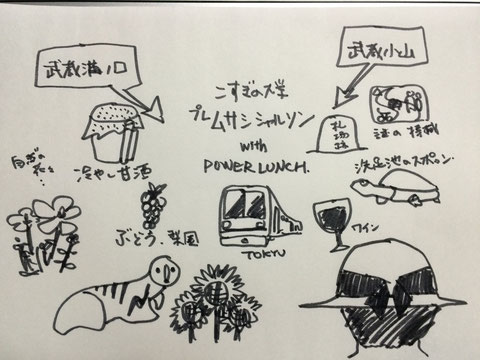 武蔵溝ノ口
武蔵小山
こすぎの大学
プレムサシシャルソン
with
POWER LUNCH.
謎の
洗足池のスッポン.
冷やし甘酒
ぶどう.梨園
TOKYU
ワイン